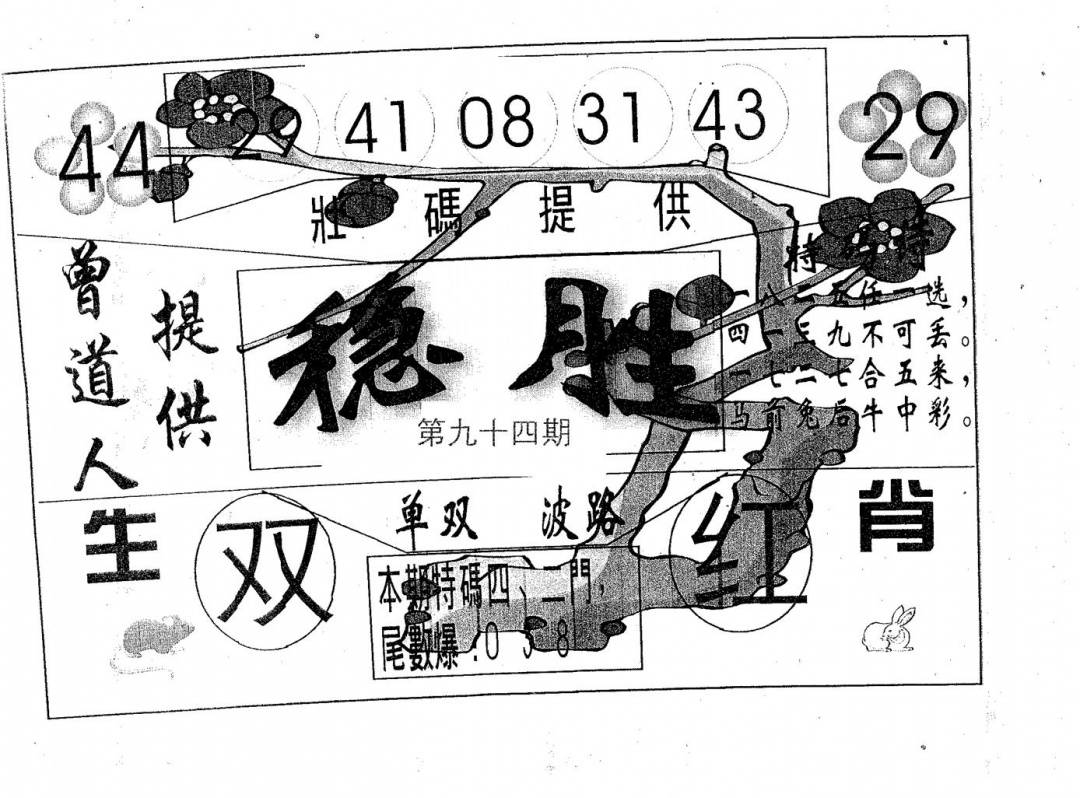 44 29 41 08 31 43 29
壯碼提供
曾道人
提供
稳胜
第九十四期
特码诗
一八二五任一选，
四一三九不可丢。
一七二七合五来，
马前兔后牛中彩。
生
双
单双 波路
红
肖
本期特碼四、二門，
尾數爆：0 3 8